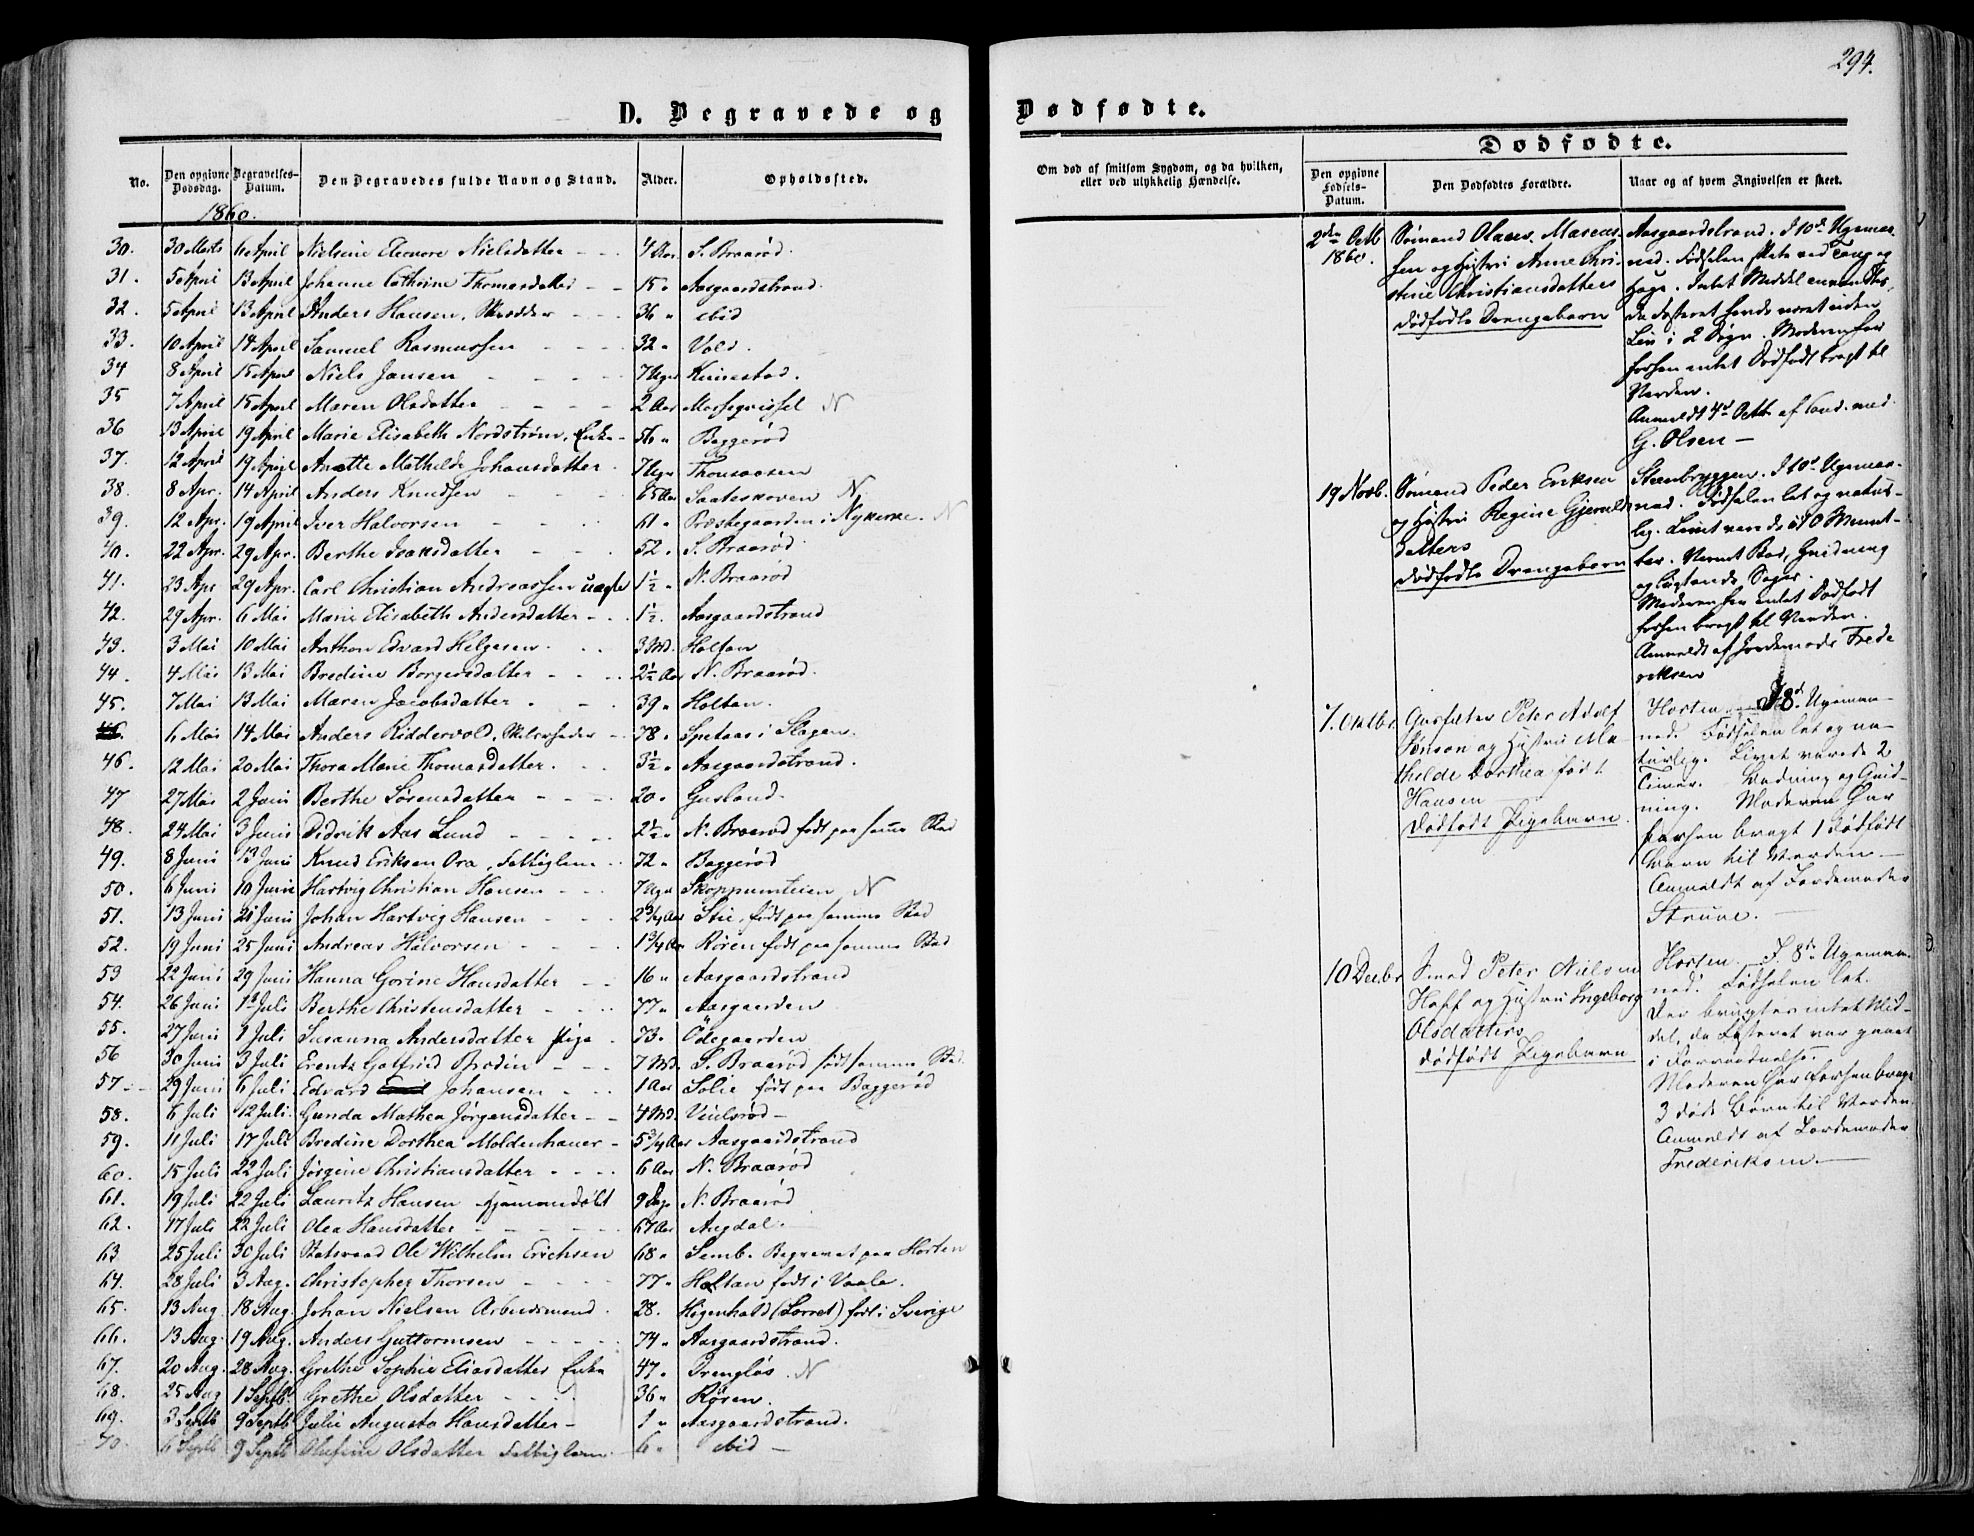 294.
D. Begravede og Dødfødte.
No. Den opgivne Dødsdag. Begravelses-Datum. Den Begravedes fulde Navn og Stand. Alder. Opholdssted.
1860.
30. 30 Marts 6 April Nielsine Eleonore Nielsdatter - - - 4 Aar S. Braarød.
31. 5 April 13 April Johanne Cathrine Thomasdatter - - 15 " Aasgaardstrand.
32. 5 April 13 April Anders Hansen, Skrædder - - - 36 " ibid
33. 10 April 14 April Samuel Rasmussen - - - 32 " Vold.
34 8 April 15 April Niels Jansen - - - - 7 Uger Knivestad.
35 7 April 15 April Maren Olsdatter - - - - 2 Aar N
36 13 April 19 April Marie Elisabeth Nordstrøm, Enke - 56 " Baggerød
37. 12 April 19 April Anette Mathilde Johansdatter. 7 Uger
38. 8 Apr. 14 April Anders Knudsen - - - - 65 Aar N
39. 12 Apr. 19 April Iver Halvorsen - - - 61 " Præstegaarden i Nykirke. N
40. 22 Apr. 29 Apr. Berthe Isaksdatter - - - 52. S. Braarød
41. 23 Apr 29 Apr. Carl Christian Andreassen uægte 1½ " N. Braarød
42. 29 Apr. 6 Mai Marie Elisabeth Andersdatter - - 1½. Aasgaardstrand
43. 3 Mai 10 Mai Anthon Edvard Helgesen. - - 3 Md. Holtan
44. 4 Mai 13 Mai Bredine Borgersdatter - - - 2½ Aar N. Braarød.
45. 7 Mai 13 Mai Maren Jacobsdatter - - - 39 " Holtan.
6 Mai 14 Mai Anders Riddervold, - 78 " i Slagen.
46. 12 Mai 20 Mai Thora Marie Thomasdatter. - - 3½ " Aasgaardstrand.
47 27 Mai 2 Juni Berthe Sørensdatter - - - 20 " Gusland.
48. 24 Mai 3 Juni Didrik Aas Lund - - - - 2½ " N. Braarød født paa samme Sted
49. 8 Juni 13 Juni Knud Eriksen Ora, Fattiglem - - 72 " Baggerød
50. 6 Juni 10 Juni Hartvig Christian Hansen - - - 7 Uger Skoppumteien N
51. 13 Juni 21 Juni Johan Hartvig Hansen - - - 2¾ Aar Stie, født paa samme Sted
52. 19 Juni 25 Juni Andreas Halvorsen - - - 1¾ Aar Røren født paa samme Sted
53 22 Juni 29 Juni Hanna Gorine Hansdatter - - 16 " Aasgaardstrand
54. 26 Juni 1 Juli Berthe Christensdatter - - - 77 " Aasgaarden
55. 27 Juni 1 Juli Susanna Andersdatter Pige - 73 " Ödegaarden
56 30 Juni 3 Juli Erentz Gotfred Brodin - - - 7 Md. S. Braarød født samme Sted.
57 - 29 Juni 6 Juli Edvard Johansen - - - 1 Aar Solie født paa Baggerød
58. 6 Juli 12 Juli. Gunda Mathea Jørgensdatter - - 4 Md.
59. 11 Juli 17 Juli Bredine Dorthea Moldenhauer - 5¾ Aar Aasgaardstrand
60. 15 Juli 22 Juli Jørgine Christiansdatter - - - - 6 Aar N. Braarød
61. 19 Juli 22 Juli Lauritz Hansen hjemmedøbt 9 Dage N. Braarød
62. 17 Juli 22 Juli Olea Hansdatter - - - - 67 Aar Augdal.
63 25 Juli 30 Juli Statsraad Ole Wilhelm Erichsen 68 " Semb. Begravet paa Horten
64. 28 Juli 3 Aug. Christopher Thorsen - - - - 77 " Holtan født i Vaale.
65. 13 Aug. 18 Aug. Johan Nielsen Arbeidsmand. 28. (Borret) født i Sverige
66. 13 Aug. 19 Aug. Anders Guttormsen - - - - 74 " Aasgaardstrand.
67. 20 Aug. 28 Aug. Grethe Sophie Eliasdatter Enke 47. N
68. 25 Aug 1 Septb. Grethe Olsdatter - - - 36 " Røren.
69. 3 Septb 9 Septb Julie Augusta Hansdatter - 1 " Aasgaardstrand.
70. 6 Septb 9 Septb Olufine Olsdatter Fattiglem 6 " ibid -
Om død af smitsom Sygdom, og da hvilken, eller ved ulykkelig Hændelse.
Dødfødte.
Den opgivne Fødsels-Datum. Den Dødfødtes Forældre. Naar og af hvem Angivelsen er skeet.
2den Octb 1860.
Sømand Olaus Mareus-
sen og Hustru Anne Chri-
stine Christiansdatters
dødfødte Drengebarn
Aasgaardstrand. I 10de Ugemaa-
ned. Fødselen skete ved Tang og
Hage. Intet Middel anvendtes,
da Fosteret havde været uden
Liv i 2 Døgn. Moderen har
forhen intet Dødfødt bragt til
Verden.
Anmeldt 4de Octb. af Cand. med.
G. Olsen -
19 Novb.
Sømand Peder Eriksen
og Hustru Regine Gjerulds-
datters
dødfødte Drengebarn
Steenbryggen. I 10de Ugemaa-
ned. Fødselen let og natur-
lig. Livet varede i 10 Minut-
ter. Varmt Bad, Gnidning
og lugtende Sager.
Moderen har intet Dødfødt
forhen bragt til Verden.
Anmeldt af Jordemoder Frede
riksen
7. Oktbr.
Peter Adolf
Jönson og Hustru Ma-
thilde Dorthea født
Hansen
dødfødt Pigebarn.
Horten. I 8de Ugemaa-
ned. Fødselen let og na-
turlig. Livet varede 2
Timer. Badning og Gnid-
ning. Moderen har
forhen bragt 1 dødfødt
Barn til Verden. -
Anmeldt af Jordemoder
Struve. -
10 Decbr
Smed Peter Nielsen
Hoff og Hustru Ingeborg
Olsdatters
dødfødt Pigebarn
Horten. I 8de Ugemaa-
ned. Fødselen let.
Der brugtes intet Mid-
del, da Fosteret var gaaet
i Forraadnelse.
Moderen har forhen bragt
3 døde Børn til Verden.
Anmeldt af Jordemoder
Frederiksen. -